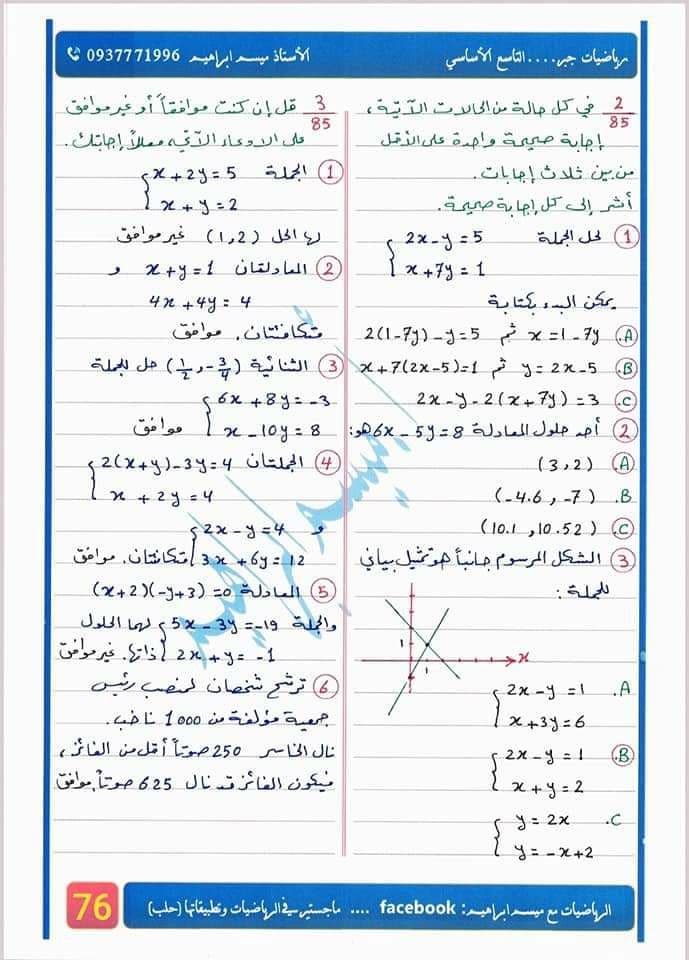 رياضيات جبر.... التاسع الأساسي
الأستاذ ميسم ابراهيم 0937771996
2/85 في كل حالة من الحالات الآتية،
إجابة صحيحة واحدة على الأقل
من بين ثلاث إجابات.
أشر إلى كل إجابة صحيحة.
1 لحل الجملة { 2x - y = 5
x + 7y = 1
يمكن البدء بكتابة
A. x = 1 - 7y ثم 2(1-7y) - y = 5
B. y = 2x - 5 ثم x + 7(2x-5) = 1
C. 2x - y - 2(x + 7y) = 3
2 أحد حلول المعادلة 6x - 5y = 8 هو:
A. (3, 2)
B. (-4.6, -7)
C. (10.1, 10.52)
3 الشكل المرسوم جانباً هو تمثيل بياني
للجملة:
1
1
x
A. { 2x - y = 1
x + 3y = 6
B. { 2x - y = 1
x + y = 2
C. { y = 2x
y = -x + 2
3/85 قل إن كنت موافقاً أو غير موافق
على الادعاء الآتي، معللاً إجابتك.
1 الجملة { x + 2y = 5
x + y = 2
لها الحل (1, 2) غير موافق
2 المعادلتان x + y = 1 و
4x + 4y = 4
متكافئتان. موافق
3 الثنائية (1/2, -3/4) حل للجملة
{ 6x + 8y = -3
x - 10y = 8 موافق
4 الجملتان { 2(x+y) - 3y = 4
x + 2y = 4
و { 2x - y = 4
3x + 6y = 12 متكافئتان. موافق
5 المعادلة (x+2)(-y+3) = 0
والجملة { 5x - 3y = -19 لهما الحلول
2x + y = -1 ذاتها. غير موافق
6 ترشح شخصان لمنصب رئيس
جمعية مؤلفة من 1000 ناخب.
نال الخاسر 250 صوتاً أقل من الفائز،
فيكون الفائز قد نال 625 صوتاً. موافق
ميسم ابراهيم
الرياضيات مع ميسم ابراهيم: facebook .... ماجستير في الرياضيات وتطبيقاتها (حلب)
76